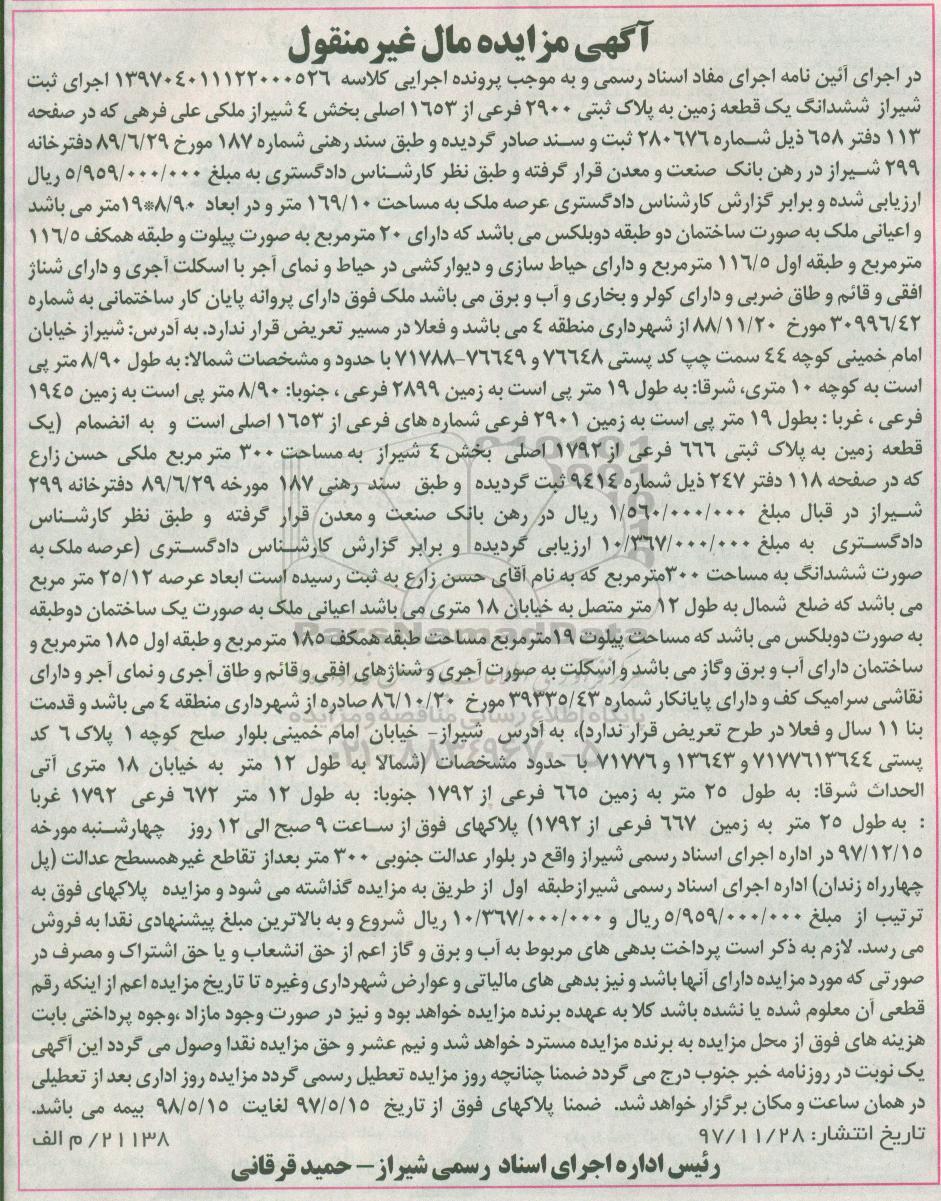 آگهی مزایده مال غیر منقول
در اجرای آئین نامه اجرای مفاد اسناد رسمی و به موجب پرونده اجرایی کلاسه ۱۳۹۷۰۴۰۱۱۱۲۲۰۰۰۵۲۶ اجرای ثبت
شیراز ششدانگ یک قطعه زمین به پلاک ثبتی ۲۹۰۰ فرعی از ۱۶۵۳ اصلی بخش ۴ شیراز ملکی علی فرهی که در صفحه
۱۱۳ دفتر ۶۵۸ ذیل شماره ۲۸۰۶۷۶ ثبت و سند صادر گردیده و طبق سند رهنی شماره ۱۸۷ مورخ ۸۹/۶/۲۹ دفترخانه
۲۹۹ شیراز در رهن بانک صنعت و معدن قرار گرفته و طبق نظر کارشناس دادگستری به مبلغ ۵/۹۵۹/۰۰۰/۰۰۰ ریال
ارزیابی شده و برابر گزارش کارشناس دادگستری عرصه ملک به مساحت ۱۶۹/۱۰ متر و در ابعاد ۸/۹۰*۱۹متر می باشد
و اعیانی ملک به صورت ساختمان دو طبقه دوبلکس می باشد که دارای ۲۰ مترمربع به صورت پیلوت و طبقه همکف ۱۱۶/۵
مترمربع و طبقه اول ۱۱۶/۵ مترمربع و دارای حیاط سازی و دیوارکشی در حیاط و نمای آجر با اسکلت آجری و دارای شناژ
افقی و قائم و طاق ضربی و دارای کولر و بخاری و آب و برق می باشد ملک فوق دارای پروانه پایان کار ساختمانی به شماره
۳۰۹۹۶/۴۲ مورخ ۸۸/۱۱/۲۰ از شهرداری منطقه ۴ می باشد و فعلا در مسیر تعریض قرار ندارد. به آدرس: شیراز خیابان
امام خمینی کوچه ۴۴ سمت چپ کد پستی ۷۶۶۴۸ و ۷۶۶۴۹-۷۱۷۸۸ با حدود و مشخصات شمالا: به طول ۸/۹۰ متر پی
است به کوچه ۱۰ متری، شرقا: به طول ۱۹ متر پی است به زمین ۲۸۹۹ فرعی ، جنوبا: ۸/۹۰ متر پی است به زمین ۱۹۴۵
فرعی ، غربا : بطول ۱۹ متر پی است به زمین ۲۹۰۱ فرعی شماره های فرعی از ۱۶۵۳ اصلی است و به انضمام (یک
قطعه زمین به پلاک ثبتی ۶۶۶ فرعی از ۱۷۹۲ اصلی بخش ۴ شیراز به مساحت ۳۰۰ متر مربع ملکی حسن زارع
که در صفحه ۱۱۸ دفتر ۲۴۷ ذیل شماره ۹۴۱۴ ثبت گردیده و طبق سند رهنی ۱۸۷ مورخه ۸۹/۶/۲۹ دفترخانه ۲۹۹
شیراز در قبال مبلغ ۱/۵۶۰/۰۰۰/۰۰۰ ریال در رهن بانک صنعت و معدن قرار گرفته و طبق نظر کارشناس
دادگستری به مبلغ ۱۰/۳۶۷/۰۰۰/۰۰۰ ارزیابی گردیده و برابر گزارش کارشناس دادگستری (عرصه ملک به
صورت ششدانگ به مساحت ۳۰۰مترمربع که به نام آقای حسن زارع به ثبت رسیده است ابعاد عرصه ۲۵/۱۲ متر مربع
می باشد که ضلع شمال به طول ۱۲ متر متصل به خیابان ۱۸ متری می باشد اعیانی ملک به صورت یک ساختمان دوطبقه
به صورت دوبلکس می باشد که مساحت پیلوت ۱۹مترمربع مساحت طبقه همکف ۱۸۵ مترمربع و طبقه اول ۱۸۵ مترمربع و
ساختمان دارای آب و برق وگاز می باشد و اسکلت به صورت آجری و شناژهای افقی و قائم و طاق آجری و نمای آجر و دارای
نقاشی سرامیک کف و دارای پایانکار شماره ۳۹۳۳۵/۴۳ مورخ ۸۶/۱۰/۲۰ صادره از شهرداری منطقه ۴ می باشد و قدمت
بنا ۱۱ سال و فعلا در طرح تعریض قرار ندارد)، به آدرس شیراز- خیابان امام خمینی بلوار صلح کوچه ۱ پلاک ۶ کد
پستی ۷۱۷۷۶۱۳۶۴۴ و ۱۳۶۴۳ و ۷۱۷۷۶ با حدود مشخصات (شمالا به طول ۱۲ متر به خیابان ۱۸ متری آتی
الحداث شرقا: به طول ۲۵ متر به زمین ۶۶۵ فرعی از ۱۷۹۲ جنوبا: به طول ۱۲ متر ۶۷۲ فرعی ۱۷۹۲ غربا
: به طول ۲۵ متر به زمین ۶۶۷ فرعی از ۱۷۹۲) پلاکهای فوق از ساعت ۹ صبح الی ۱۲ روز چهارشنبه مورخه
۹۷/۱۲/۱۵ در اداره اجرای اسناد رسمی شیراز واقع در بلوار عدالت جنوبی ۳۰۰ متر بعداز تقاطع غیرهمسطح عدالت (پل
چهارراه زندان) اداره اجرای اسناد رسمی شیرازطبقه اول از طریق به مزایده گذاشته می شود و مزایده پلاکهای فوق به
ترتیب از مبلغ ۵/۹۵۹/۰۰۰/۰۰۰ ریال و ۱۰/۳۶۷/۰۰۰/۰۰۰ ریال شروع و به بالاترین مبلغ پیشنهادی نقدا به فروش
می رسد. لازم به ذکر است پرداخت بدهی های مربوط به آب و برق و گاز اعم از حق انشعاب و یا حق اشتراک و مصرف در
صورتی که مورد مزایده دارای آنها باشد و نیز بدهی های مالیاتی و عوارض شهرداری وغیره تا تاریخ مزایده اعم از اینکه رقم
قطعی آن معلوم شده یا نشده باشد کلا به عهده برنده مزایده خواهد بود و نیز در صورت وجود مازاد ،وجوه پرداختی بابت
هزینه های فوق از محل مزایده به برنده مزایده مسترد خواهد شد و نیم عشر و حق مزایده نقدا وصول می گردد این آگهی
یک نوبت در روزنامه خبر جنوب درج می گردد ضمنا چنانچه روز مزایده تعطیل رسمی گردد مزایده روز اداری بعد از تعطیلی
در همان ساعت و مکان برگزار خواهد شد. ضمنا پلاکهای فوق از تاریخ ۹۷/۵/۱۵ لغایت ۹۸/۵/۱۵ بیمه می باشد.
تاریخ انتشار: ۹۷/۱۱/۲۸
۲۱۱۳۸/ م الف
رئیس اداره اجرای اسناد رسمی شیراز – حمید قرقانی